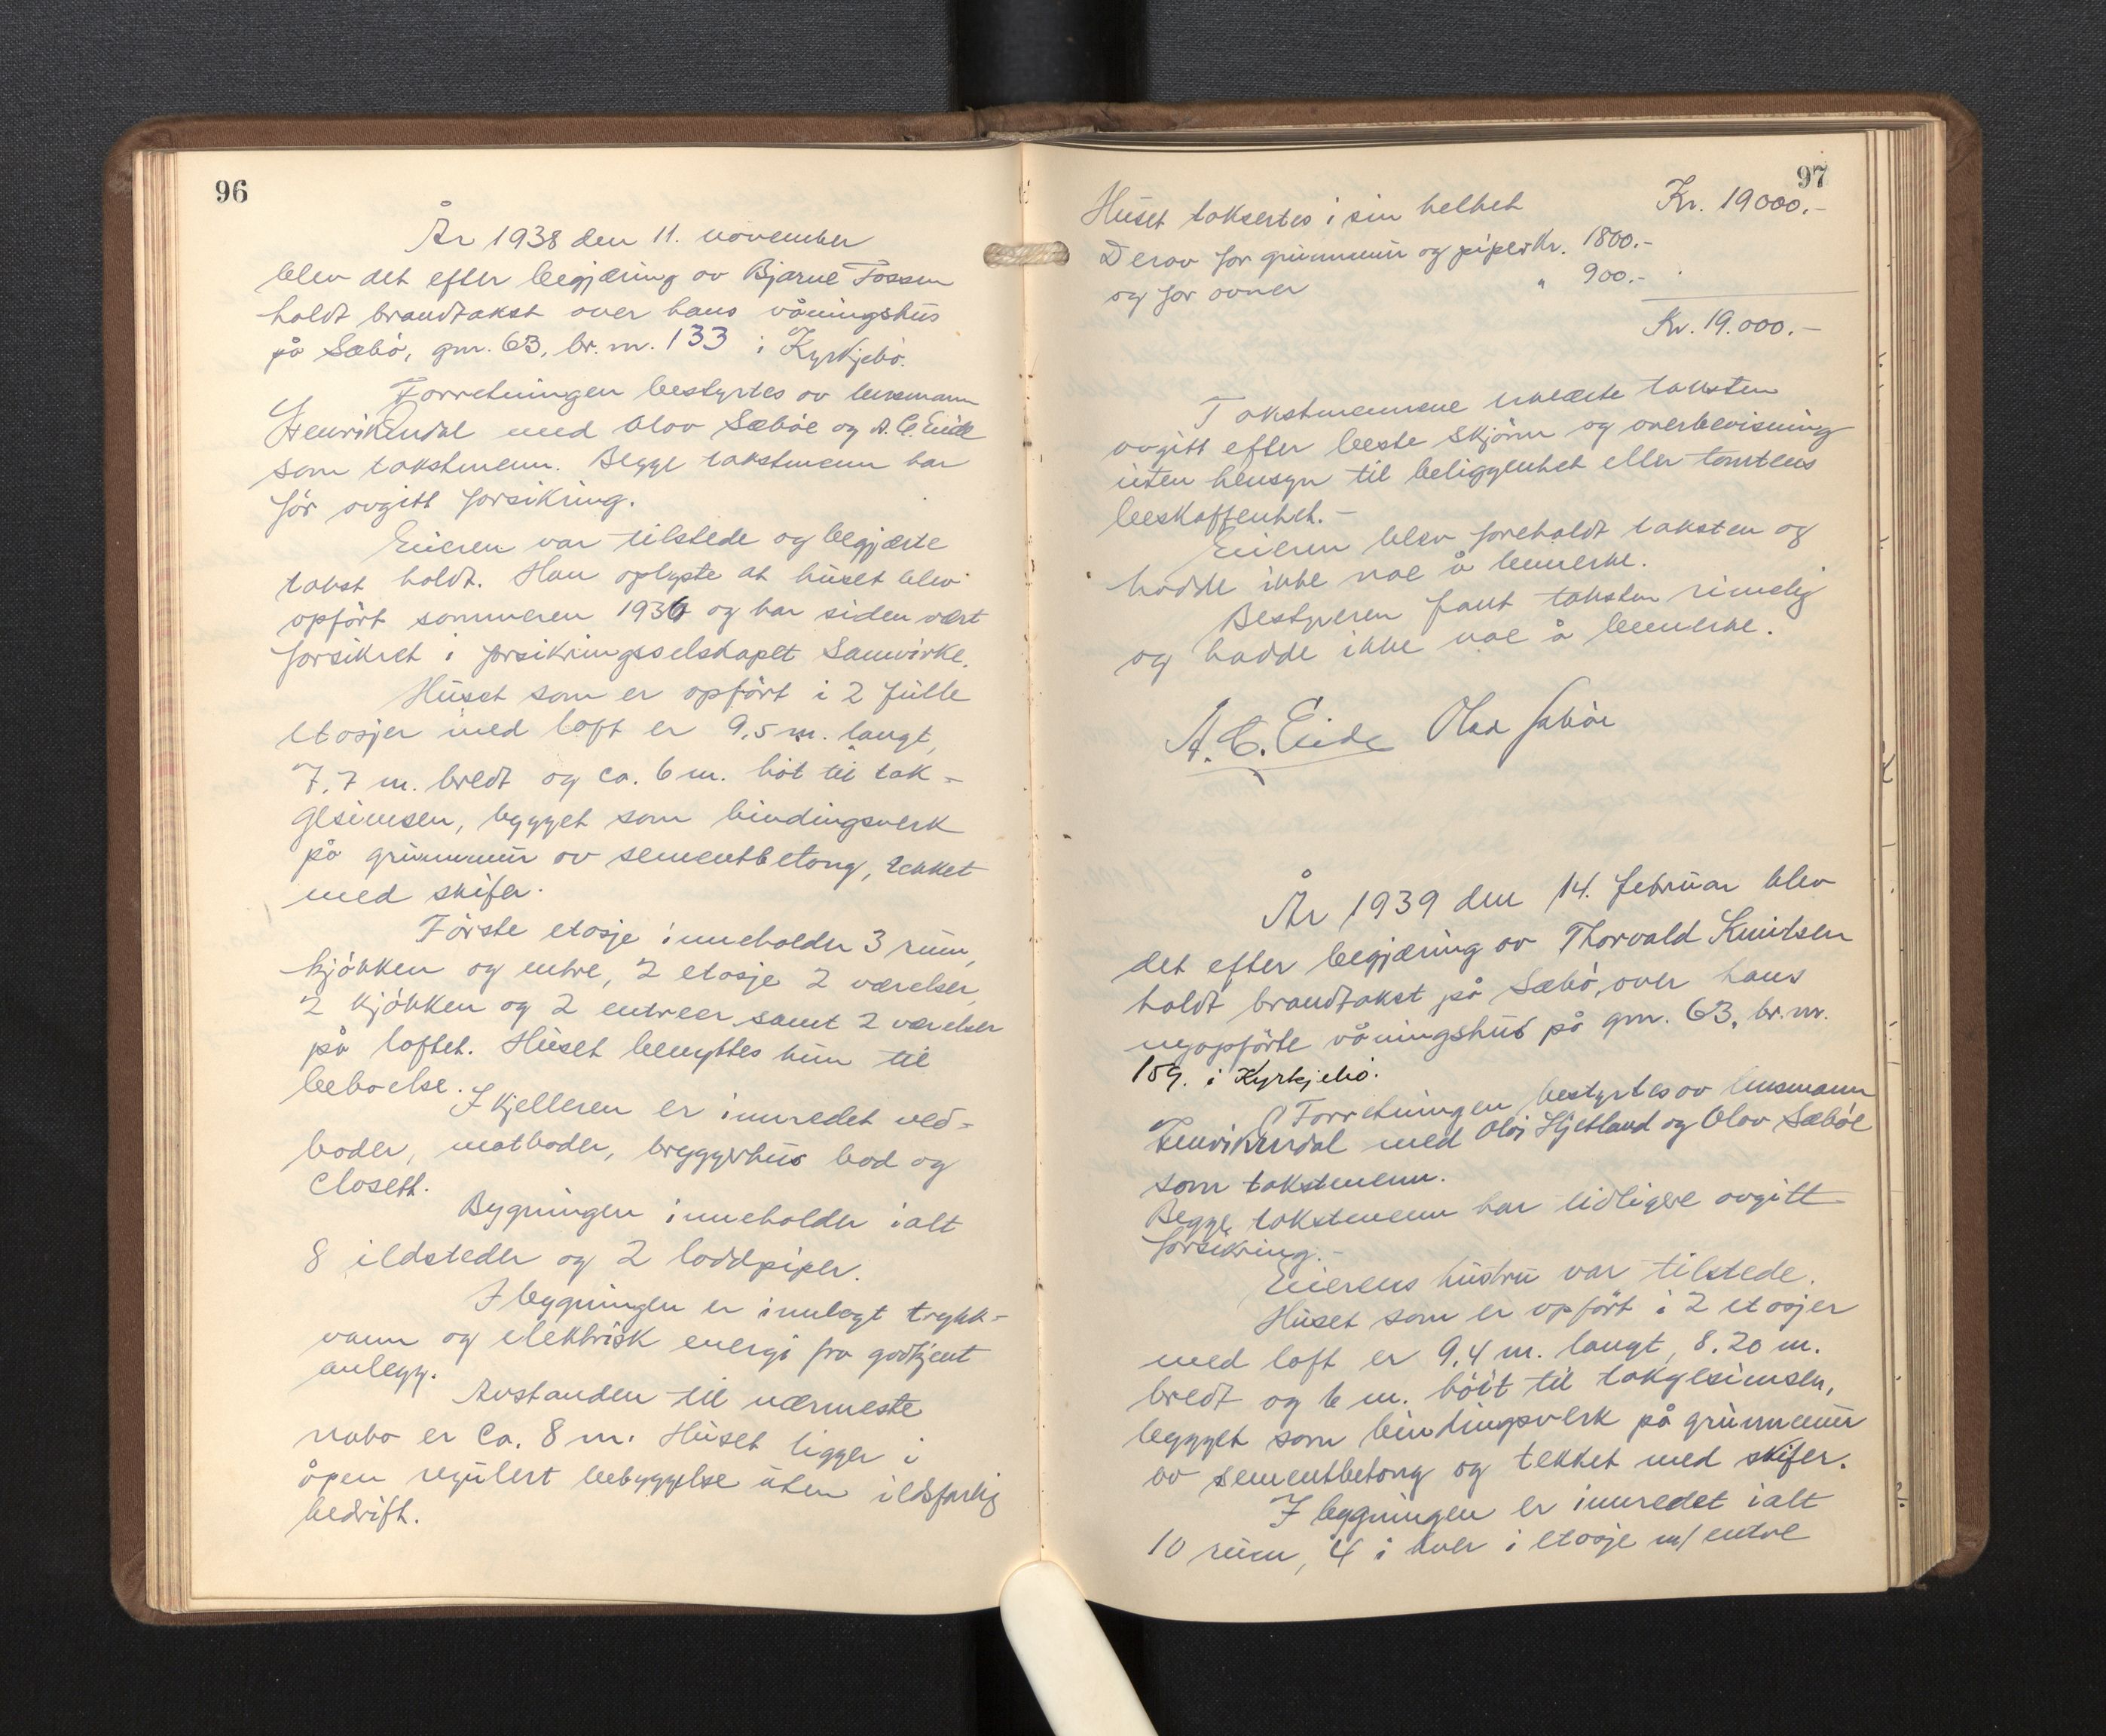 96
År 1938 den 11. november
blev det efter begjæring av Bjarne Fossen
holdt brandtakst over hans våningshus
på Sæbö, gnr. 63, br. nr. 133 i Kyrkjebö.
Forretningen bestyrtes av lensmann
Henrik Endal med Olav Sæböe og A. C. Eide
som takstmenn. Begge takstmenn har
för avgitt forsikring.
Eieren var tilstede og begjærte
takst holdt. Han oplyste at huset blev
opfört sommeren 1936 og har siden vært
forsikret i forsikringsselskapet Samvirke.
Huset som er opfört i 2 fulle
etasjer med loft er 9,5 m. langt,
7,7 m. bredt og ca. 6 m. höit til tak-
gesimsen, bygget som bindingsverk
på grunnmur av sementbetong, tekket
med skifer.
Förste etasje inneholder 3 rum,
kjökken og entre, 2 etasje 2 værelser,
2 kjökken og 2 entreer samt 2 værelser
på loftet. Huset benyttes kun til
beboelse.
I kjelleren er innredet ved-
boder, matboder, bryggerhus bod og
closett.
Bygningen inneholder ialt
8 ildsteder og 2 loddpiper.
I bygningen er innlagt trykk-
vann og elektrisk energi fra godkjent
anlegg.
Avstanden til nærmeste
nabo er ca. 8 m. Huset ligger i
åpen regulert bebyggelse uten ildsfarlig
bedrift.
97
Huset taksertes i sin helhet Kr. 19000.-
Derav for grunnmur og piper Kr. 1800.-
og for ovner " 900.-
Kr. 19.000.-
Takstmennene erklærte taksten
avgitt efter beste skjönn og overbevisning
uten hensyn til beliggenhet eller tomtens
beskaffenhet.-
Eieren blev foreholdt taksten og
hadde ikke noe å bemerke.
Bestyreren fant taksten rimelig
og hadde ikke noe å bemerke.
A. C. Eide Olav Sæböe
År 1939 den 14. februar blev
det efter begjæring av Thorvald Knutsen
holdt brandtakst på Sæbö, over hans
nyopförte våningshus på gnr. 63, br. nr.
159. i Kyrkjebö.
Forretningen bestyrtes av lensmann
Henrik Endal med Olai Hjetland og Olav Sæböe
som takstmenn.
Begge takstmenn har tidligere avgitt
forsikring.-
Eierens hustru var tilstede.
Huset som er opfört i 2 etasjer
med loft er 9,4 m. langt, 8,20 m.
bredt og 6 m. höit til takgesimsen,
bygget som bindingsverk på grunnmur
av sementbetong og tekket med skifer.
I bygningen er innredet ialt
10 rum, 4 i hver i etasje m/ entre